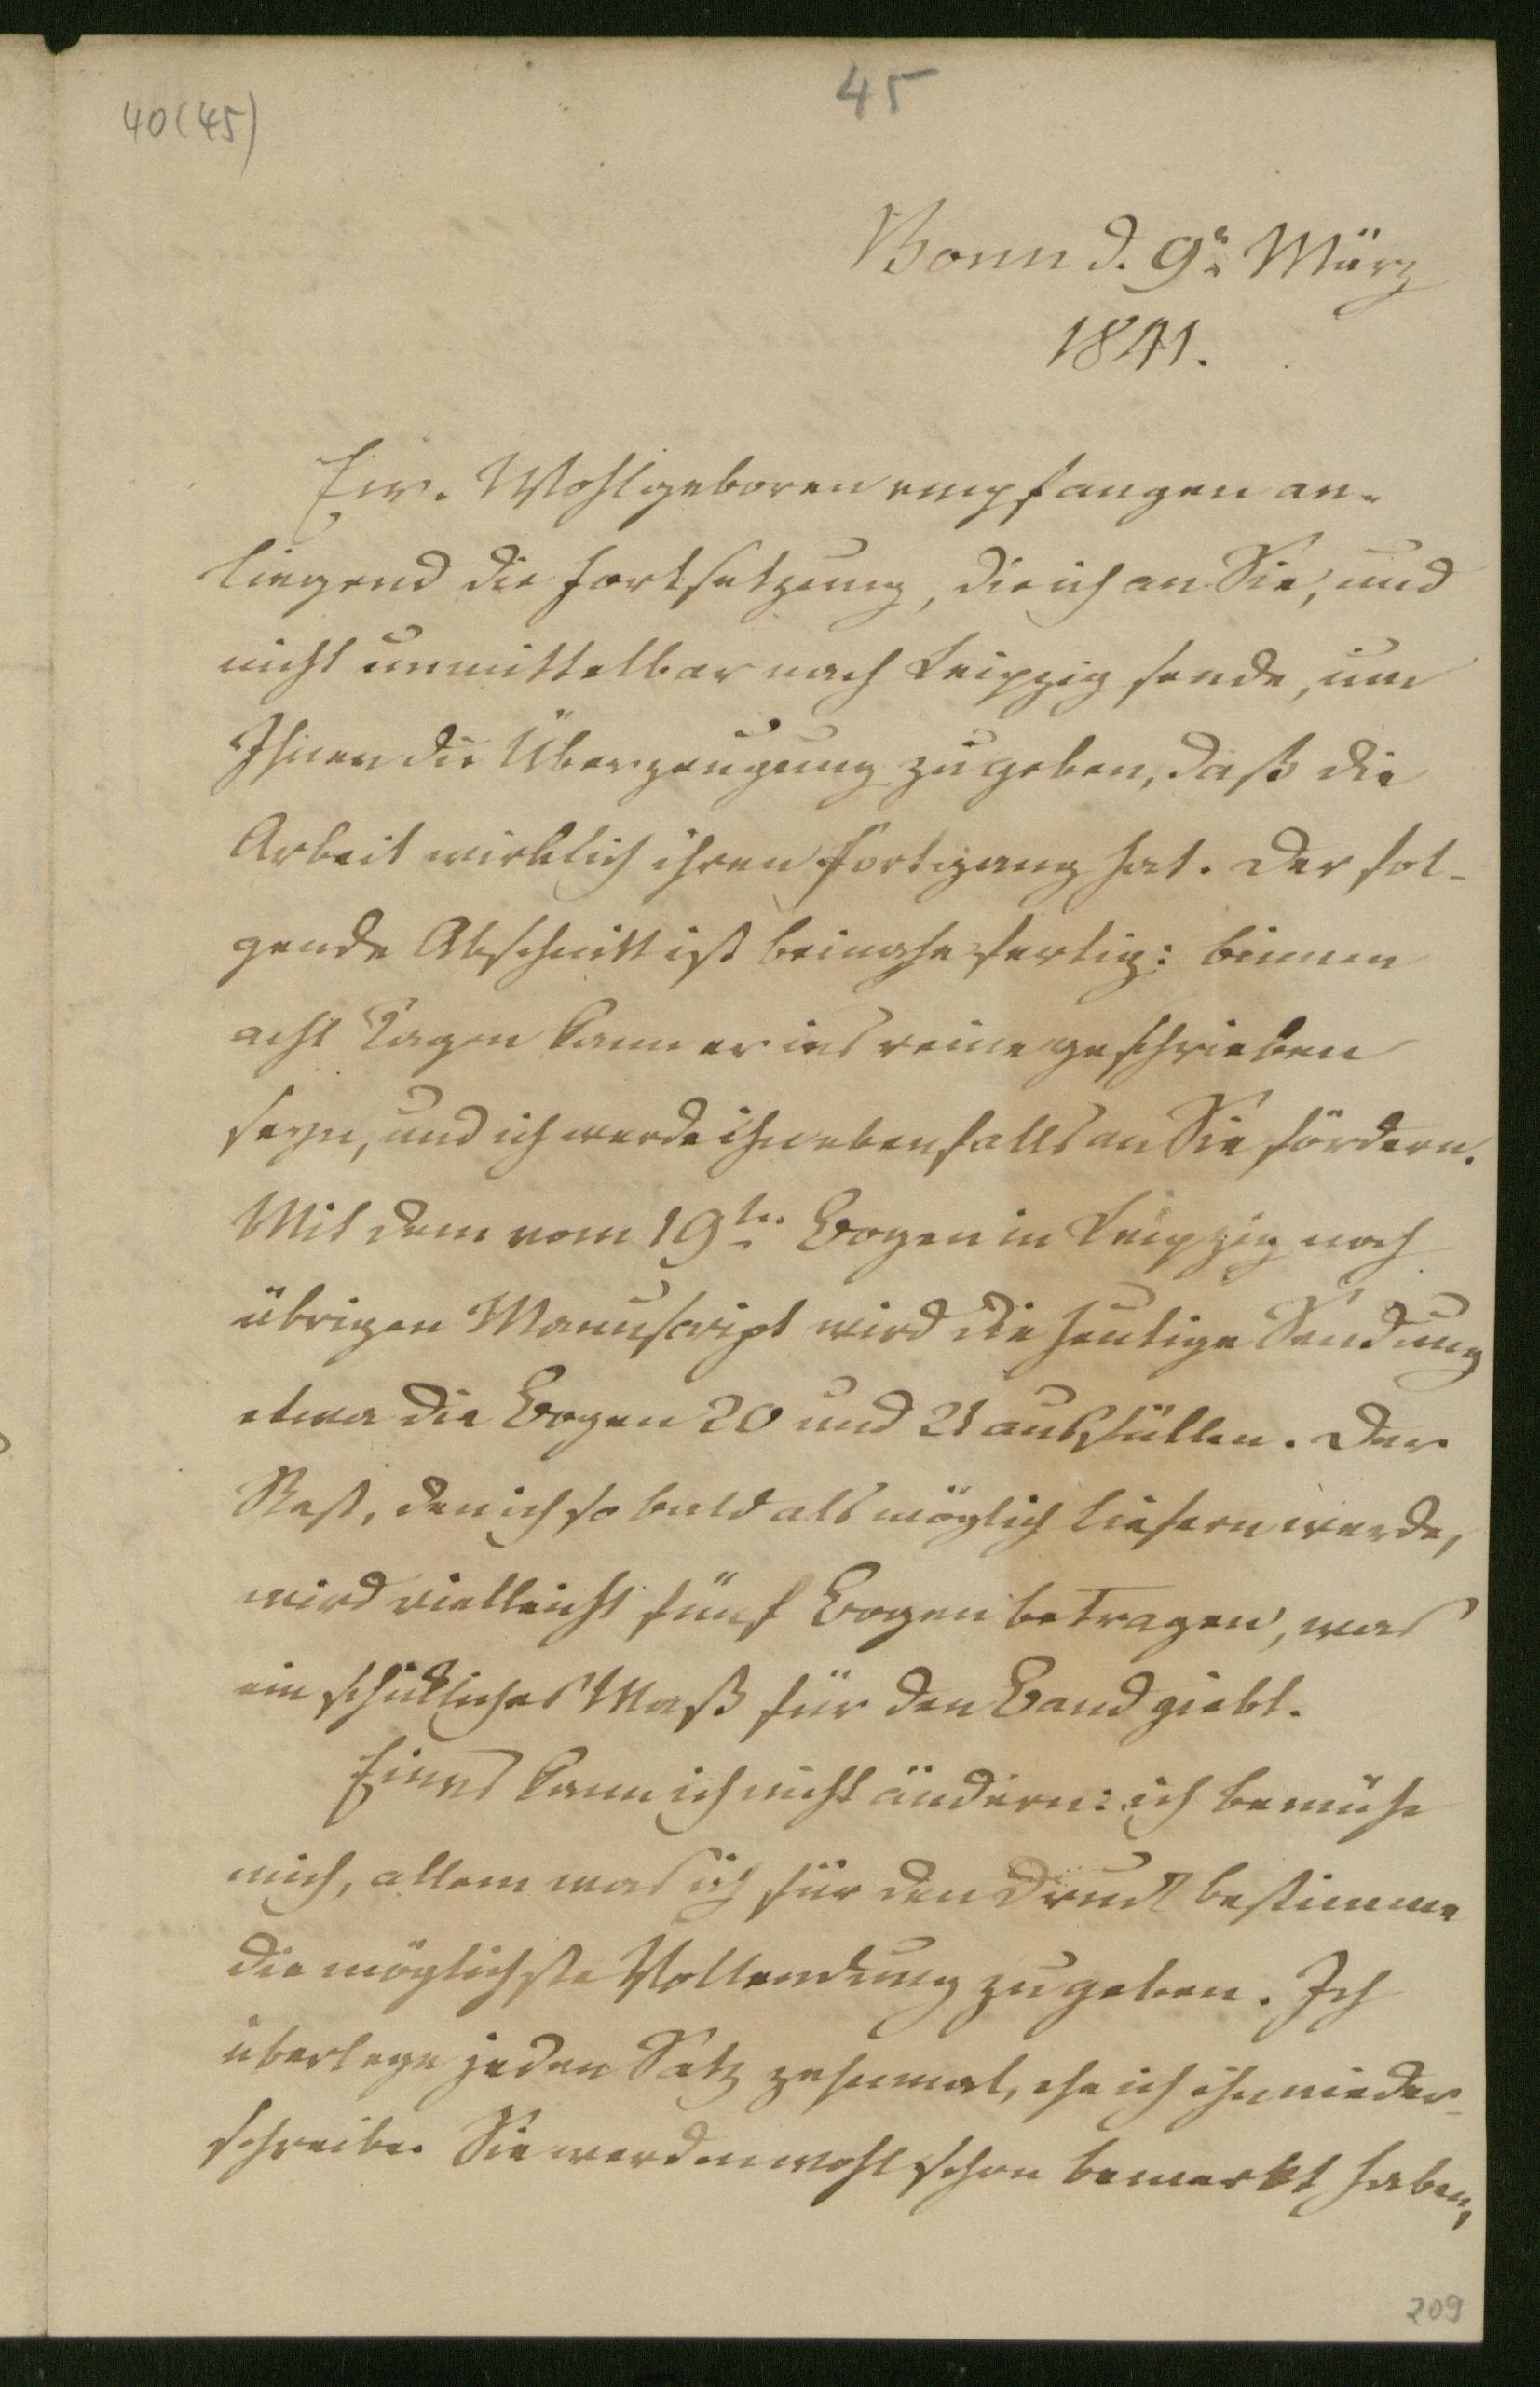 40(45)
45
Bonn d. 9n März
1841.
Ew. Wohlgeboren empfangen an-
liegend die Fortsetzung, die ich an Sie, und
nicht unmittelbar nach Leipzig sende, um
Ihnen die Überzeugung zu geben, daß die
Arbeit wirklich ihren Fortgang hat. Der fol-
gende Abschnitt ist beinahe fertig: binnen
acht Tagen kann er ins reine geschrieben
seyn, und ich werde ihn ebenfalls an Sie fördern.
Mit dem vom 19ten Bogen in Leipzig noch
übrigen Manuscript wird die heutige Sendung
etwa die Bogen 20 und 21 ausfüllen. Der
Rest, den ich so bald als möglich liefern werde,
wird vielleicht fünf Bogen betragen, was
ein schickliches Maß für den Band giebt.
Eines kann ich nicht ändern: ich bemühe
mich, allem was ich für den Druck bestimme
die möglichste Vollendung zu geben. Ich
überlege jeden Satz zehnmal, ehe ich ihn nieder-
schreibe. Sie werden wohl schon bemerkt haben,
209